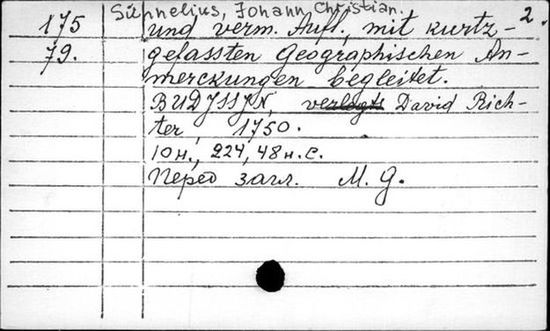 Süpnelius, Johann, Christian. 2.
175 und verm. Aufl., mit kurtz-
79. gefassten Geographischen An-
merckungen begleitet.
BUDJSSJN, verlegts David Rich-
ter, 1750.
10 н., 224, 48 н. с.
Перед загл. M. J.